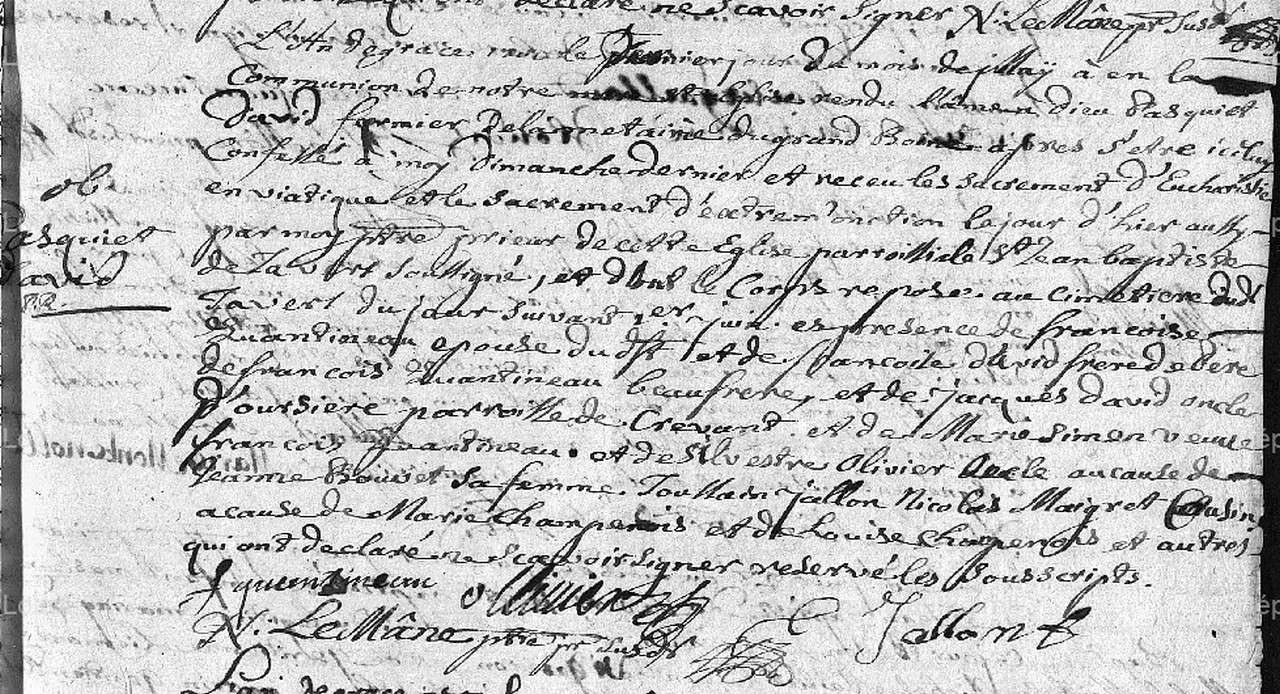 declaré ne scavoir signer N: LeMâne ptre susdt
L'An de grace mil le dernier jour du mois de May à en la
Communion de notre mere Ste Eglise rendu l'ame a Dieu Pasquiet
David fermier de la metairie du grand apres s'etre iceluy
Confessé à moy Dimanche dernier et receu les sacrement d'Eucharistie
en viatique et le sacrement d'extrem'onction le jour d'hier aussy
ob
par moy ptre prieur de cette Eglise parroissiale St Jean baptiste
Pasquiet
de Tavert soussigné, et dont le Corps repose au cimetiere dudt
David
Tavert du jour suivant 1er juin es presence de francoise
Quantineau epouse du dft et de francoise david frere de pere
de francois Quantineau beaufrere, et de jacques david oncle
parroisse de Crevant et de Marie Simen veuve
francois Quantineau et de Silvestre Olivier Oncle aucause de
Jeanne Bouet sa femme. Toussain jallon Nicolas Maigret Cousin
acause de Marie Champenois et de Louise Champenois et autres
qui ont declaré ne scavoir signer reservé les sousscripts.
f quantineau ollivier
Jallon
N: LeMâne ptre pr susdt
L'an de grace